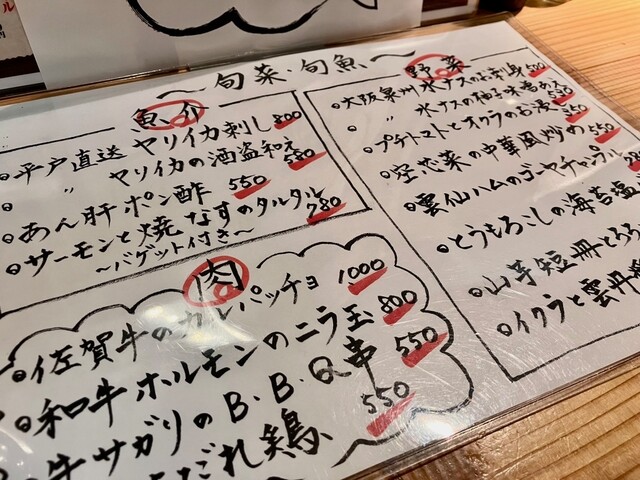 〜旬菜・旬魚〜
魚介
平戸直送 ヤリイカ刺し 800
〃 ヤリイカの酒盗和え 580
あん肝ポン酢 550
サーモンと焼なすのタルタル 780
〜バゲット付き〜
肉
佐賀牛のカルパッチョ 1000
和牛ホルモンのニラ玉 800
牛サガリのB.B.Q串 550
だれ鶏 550
野菜
大阪泉州水ナスのお刺身 500
〃 水ナスの柚子味噌
プチトマトとオクラのお浸し 350
空芯菜の中華風炒め 550
雲仙ハムのゴーヤチャンプル
とうもろこしの海苔塩
山芋短冊とろろ
イクラと雲丹